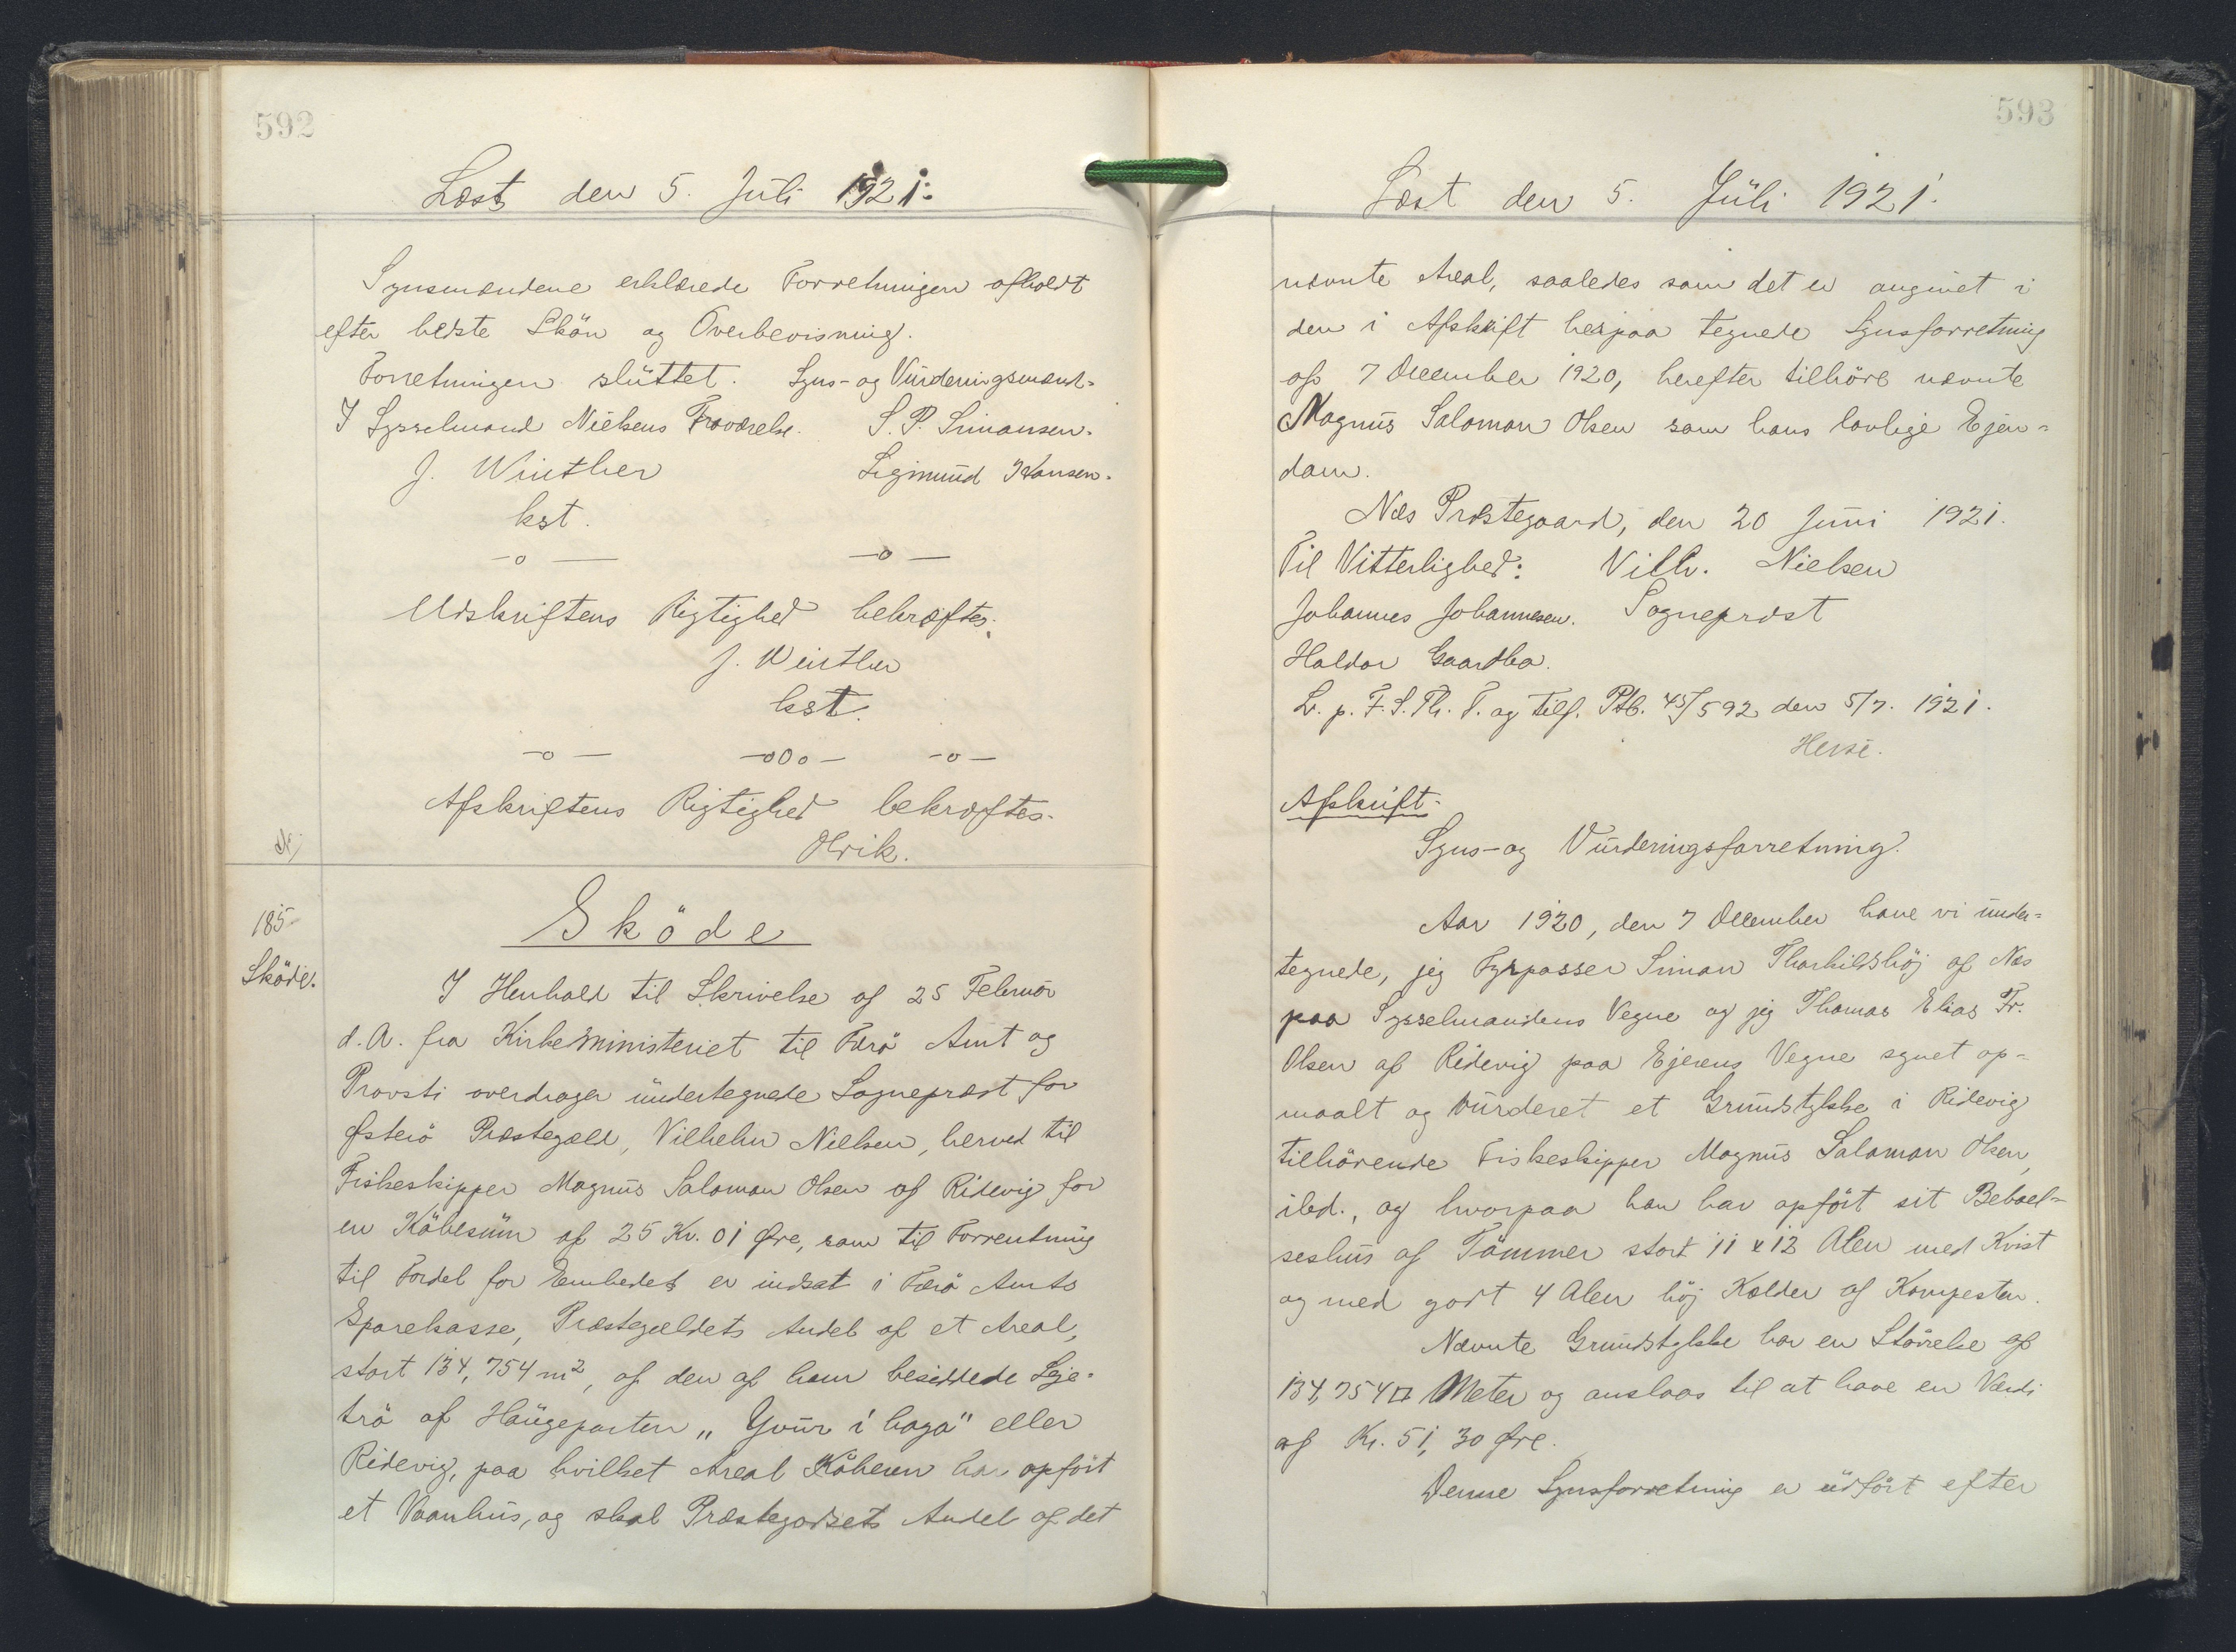 592
Læst den 5. Juli 1921.
Synsmændene erklærede Forretningen afholdt
efter bedste Skön og Overbevisning.
Forretningen sluttet. Syns- og Vurderingsmænd.
I Sysselmand Nielsens Fraværelse. S. P. Simonsen.
J. Winther Sigmund Hansen.
kst.
-o- -o-
Udskriftens Rigtighed bekræftes.
J. Winther
kst.
-o- -oOo- -o-
Afskriftens Rigtighed bekræftes.
Olrik.
185
Sköde.
Sköde
I Henhold til Skrivelse af 25 Februar
d. A. fra Kirkeministeriet til Færö Amt og
Provsti overdrager undertegnede Sognepræst for
Østerö Præstegæld, Vilhelm Nielsen, herved til
Fiskeskipper Magnus Salomon Olsen af Ridevig for
en Köbesum af 25 Kr. 01 Øre, som til Forrentning
til Fordel for Embedet er indsat i Færö Amts
Sparekasse, Præstegældets Andel af et Areal,
stort 134,754 m², af den af ham besiddede Leje-
trö af Haugeparten „Yvur i haga" eller
Ridevig, paa hvilket Areal Köberen har opfört
et Vaanhus, og skal Præstegodsets Andel af det
593
Læst den 5. Juli 1921.
nævnte Areal, saaledes som det er angivet i
den i Afskrift herpaa tegnede Synsforretning
af 7 December 1920, herefter tilhöre nævnte
Magnus Salomon Olsen som hans lovlige Ejen-
dom.
Næs Præstegaard, den 20 Juni 1921.
Til Vitterlighed: Vilh. Nielsen
Johannes Johannesen. Sognepræst
Haldor Gaardbo.
L. p. F. S. Th. T. og tilf. Ptb. 45/592 den 5/7. 1921.
Afskrift.
Syns- og Vurderingsforretning.
Aar 1920, den 7 December have vi under-
tegnede, jeg Fyrpasser Simon Thorkildshöj af Næs
paa Sysselmandens Vegne og jeg Thomas Elias Fr.
Olsen af Ridevig paa Ejerens Vegne synet op-
maalt og vurderet et Grundstykke i Ridevig
tilhörende Fiskeskipper Magnus Salomon Olsen,
ibd., og hvorpaa han har opfört sit Beboel-
seshus af Tömmer stort 11 x 12 Alen med Kvist
og med godt 4 Alen höj Kælder af Kampesten.
Nævnte Grundstykke har en Störrelse af
134,754 □ Meter og anslaas til at have en Værdi
af Kr. 51,30 Øre.
Denne Synsforretning er udfört efter